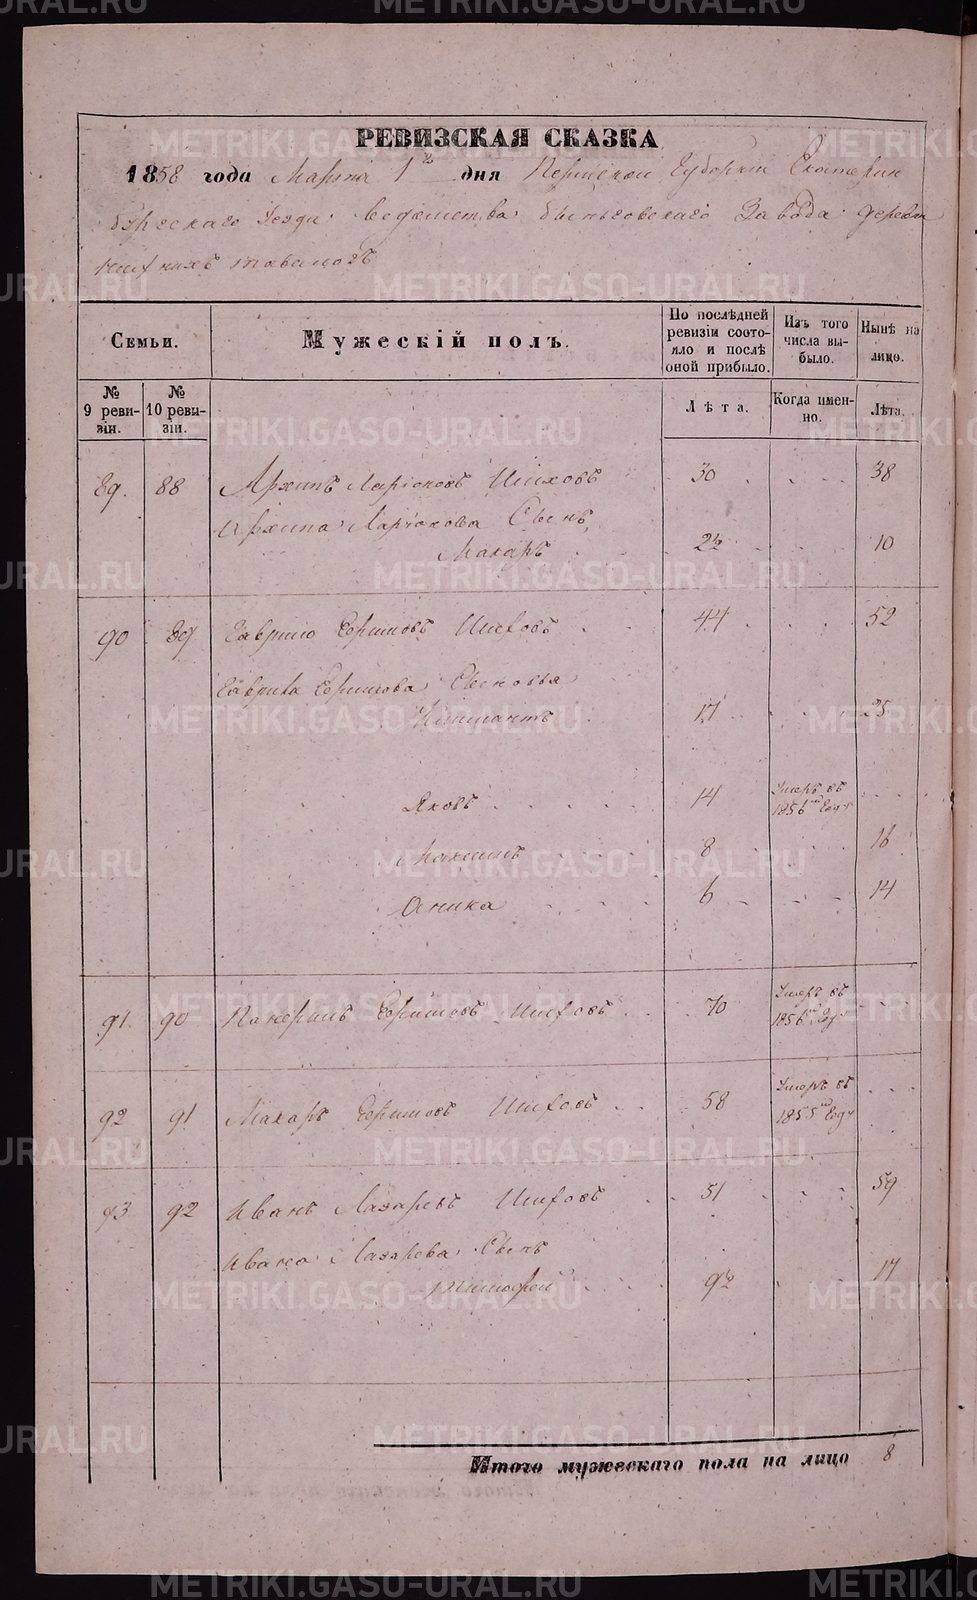 РЕВИЗСКАЯ СКАЗКА
1858 года Марта 1го дня Пермской Губернии Екатерин
бургскаго Уезда ведомства Быньговскаго Завода деревни
Нижнихъ Тавологъ
Семьи.
Мужескій полъ.
По послѣдней ревизіи состояло и послѣ оной прибыло.
Изъ того числа выбыло.
Нынѣ на лицо.
№ 9 ревизіи.
№ 10 ревизіи.
Лѣта.
Когда именно.
Лѣта.
89. 88 Архипъ Ларіоновъ 30 38
Архипа Ларіонова Сынъ
Макаръ 2½ 10
90 89 Гаврило Ефимовъ 44 52
Гаврила Ефимова Сыновья
17 25
Яковъ 14 Умеръ въ 1856мъ Году
Максимъ 8 16
Аника 6 14
91. 90 Ефимовъ 70 Умеръ въ 1856мъ Году
92 91 Макаръ Ефимовъ 58 Умеръ въ 1855мъ Году
93 92 Иванъ Лазаревъ 51 59
Ивана Лазарева Сынъ
Тимофей 9½ 17
Итого мужескаго пола на лицо 8
METRIKI.GASO-URAL.RU